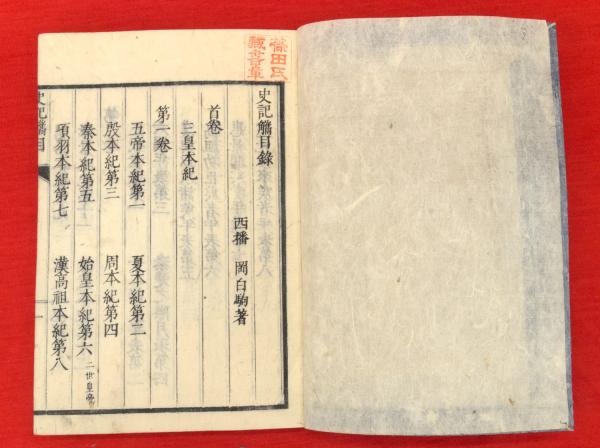 史記觿目錄
西播 岡白駒著
首卷
三皇本紀
第一卷
五帝本紀第一 夏本紀第二
殷本紀第三 周本紀第四
秦本紀第五 始皇本紀第六 二世皇帝
項羽本紀第七 漢高祖本紀第八
史記觿目
田氏
藏書章